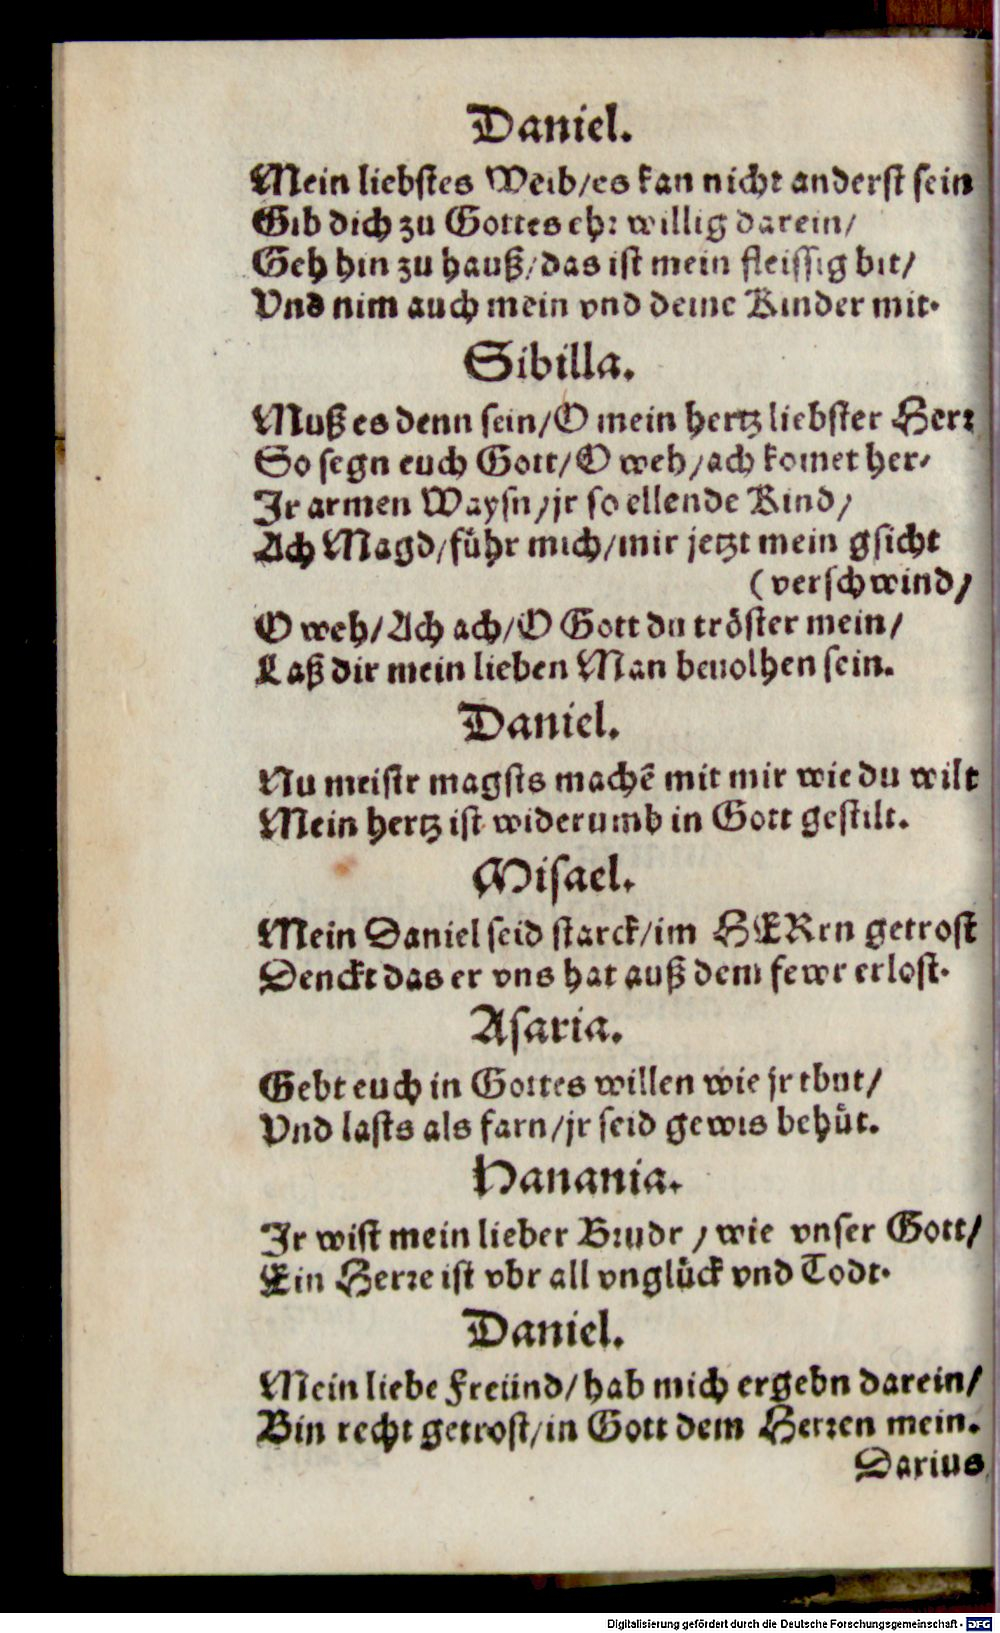 Daniel.
Mein liebstes Weib/es kan nicht anderst sein
Gib dich zu Gottes ehr willig darein/
Geh hin zu hauß/das ist mein fleissig bit/
Vnd nim auch mein vnd deine Kinder mit.
Sibilla.
Muß es denn sein/O mein hertz liebster Herr
So segn euch Gott/O weh/ach komet her/
Jr armen Waysn/jr so ellende Kind/
Ach Magd/führ mich/mir jetzt mein gsicht
(verschwind/
O weh/Ach ach/O Gott du tröster mein/
Laß dir mein lieben Man beuolhen sein.
Daniel.
Nu meistr magsts machẽ mit mir wie du wilt
Mein hertz ist widerumb in Gott gestilt.
Misael.
Mein Daniel seid starck/im HERrn getrost
Denckt das er vns hat auß dem fewr erlost.
Asaria.
Gebt euch in Gottes willen wie jr thut/
Vnd lasts als farn/jr seid gewis behüt.
Hanania.
Jr wist mein lieber Brudr / wie vnser Gott/
Ein Herre ist vbr all vnglück vnd Todt.
Daniel.
Mein liebe Freünd/hab mich ergebn darein/
Bin recht getrost/in Gott dem Herren mein.
Darius
Digitalisierung gefördert durch die Deutsche Forschungsgemeinschaft - DFG